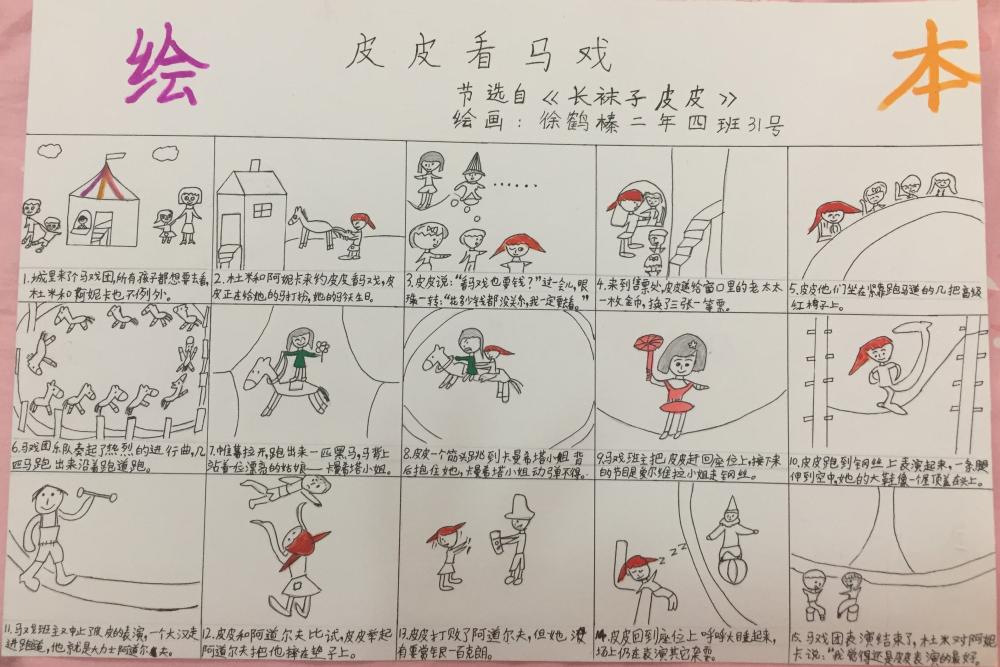 绘 皮皮看马戏 本
节选自《长袜子皮皮》
绘画：徐鹤榛二年四班31号
1.城里来个马戏团,所有孩子都想要去看,
杜米和阿妮卡也不例外。
2.杜米和阿妮卡来约皮皮看马戏,皮
皮正在给她的马打扮,她的马过生日。
3.皮皮说:“看马戏也要钱?”过一会儿,眼
珠一转:“此多少钱都没关系,我一定要去看。”
4.来到售票处,皮皮递给窗口里的老太太
一枚金币,换了三张一等票。
5.皮皮他们坐在紧靠跑马道的几把高级
红椅子上。
6.马戏团乐队奏起了热烈的进行曲,几
匹马跑出来沿着跑道跑。
7.帷幕拉开,跑出来一匹黑马,马背上
站着一位漂亮的姑娘——卡曼希塔小姐。
8.皮皮一个筋斗跳到卡曼希塔小姐背
后抱住她,卡曼希塔小姐动弹不得。
9.马戏班主把皮皮赶回座位上,接下来
的节目是爱尔维拉小姐走钢丝。
10.皮皮跑到钢丝上表演起来,一条腿
伸到空中,她的大鞋像一屋顶盖在头上。
11.马戏班主又中止了皮皮的表演,一个大汉走
进跑道,他就是大力士阿道尔夫。
12.皮皮和阿道尔夫比试,皮皮举起
阿道尔夫把他摔在垫子上。
13.皮皮打败了阿道尔夫,但她没
有要赏银一百克朗。
14.皮皮回到座位上呼呼大睡起来,
场上仍在表演其它杂耍。
15.马戏团表演结束了,杜米对阿妮
卡说:“我觉得还是皮皮表演的最好。
zzz